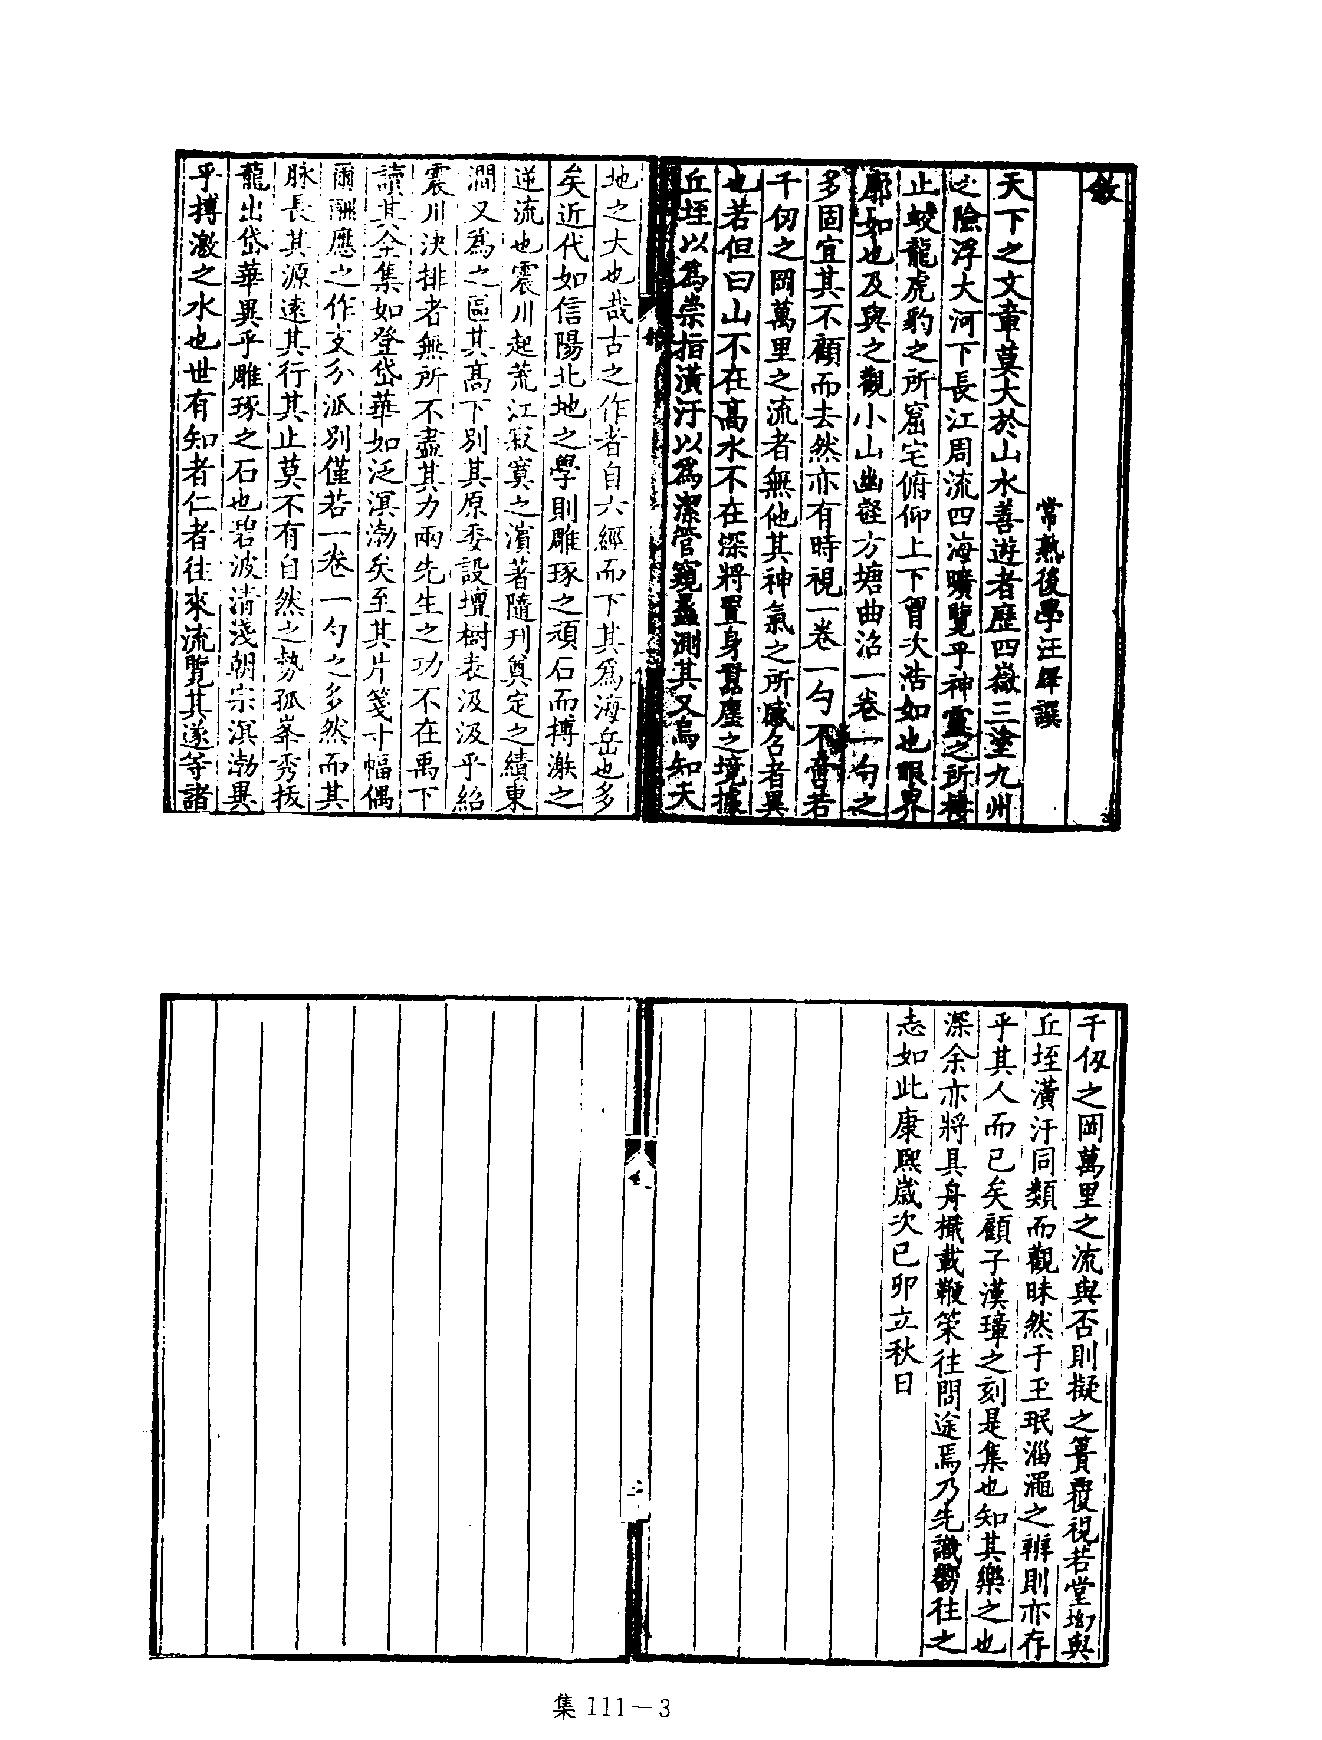 敘
常熟後學汪繹譔
天下之文章莫大於山水善遊者歷四嶽三塗九州
之險浮大河下長江周流四海曠覽乎神靈之所棲
止蛟龍虎豹之所窟宅俯仰上下胷次浩如也眼界
廓如也及與之觀小山幽壑方塘曲沼一卷一勺之
多固宜其不顧而去然亦有時視一卷一勺不啻若
千仞之岡萬里之流者無他其神氣之所感召者異
也若但曰山不在高水不在深將置身嚣塵之境據
丘垤以為崇指潢汙以為潔管窺蠡測其又焉知天
地之大也哉古之作者自六經而下其為海岳也多
矣近代如信陽北地之學則雕琢之頑石而搏激之
逆流也震川起荒江寂寞之濱著隨刋奠定之績東
澗又為之區其高下別其原委設壇樹表汲汲乎紹
震川決排者無所不盡其力兩先生之功不在禹下
讀其全集如登岱華如泛溟渤矣至其片箋寸幅偶
爾酬應之作支分派別僅若一卷一勺之多然而其
脉長其源遠其行其止莫不有自然之勢孤峯秀拔
龍出岱華異乎雕琢之石也碧波清淺朝宗溟渤異
乎搏激之水也世有知者仁者往來流覽其遂等諸
千仭之岡萬里之流與否則擬之簣覆視若堂坳與
丘垤潢汙同類而觀昧然于玉珉淄澠之辨則亦存
乎其人而已矣顧子漢璋之刻是集也知其樂之也
深余亦將具舟檝載鞭策往問途焉乃先識嚮往之
志如此康熙嵗次己卯立秋日
二
集 111－3